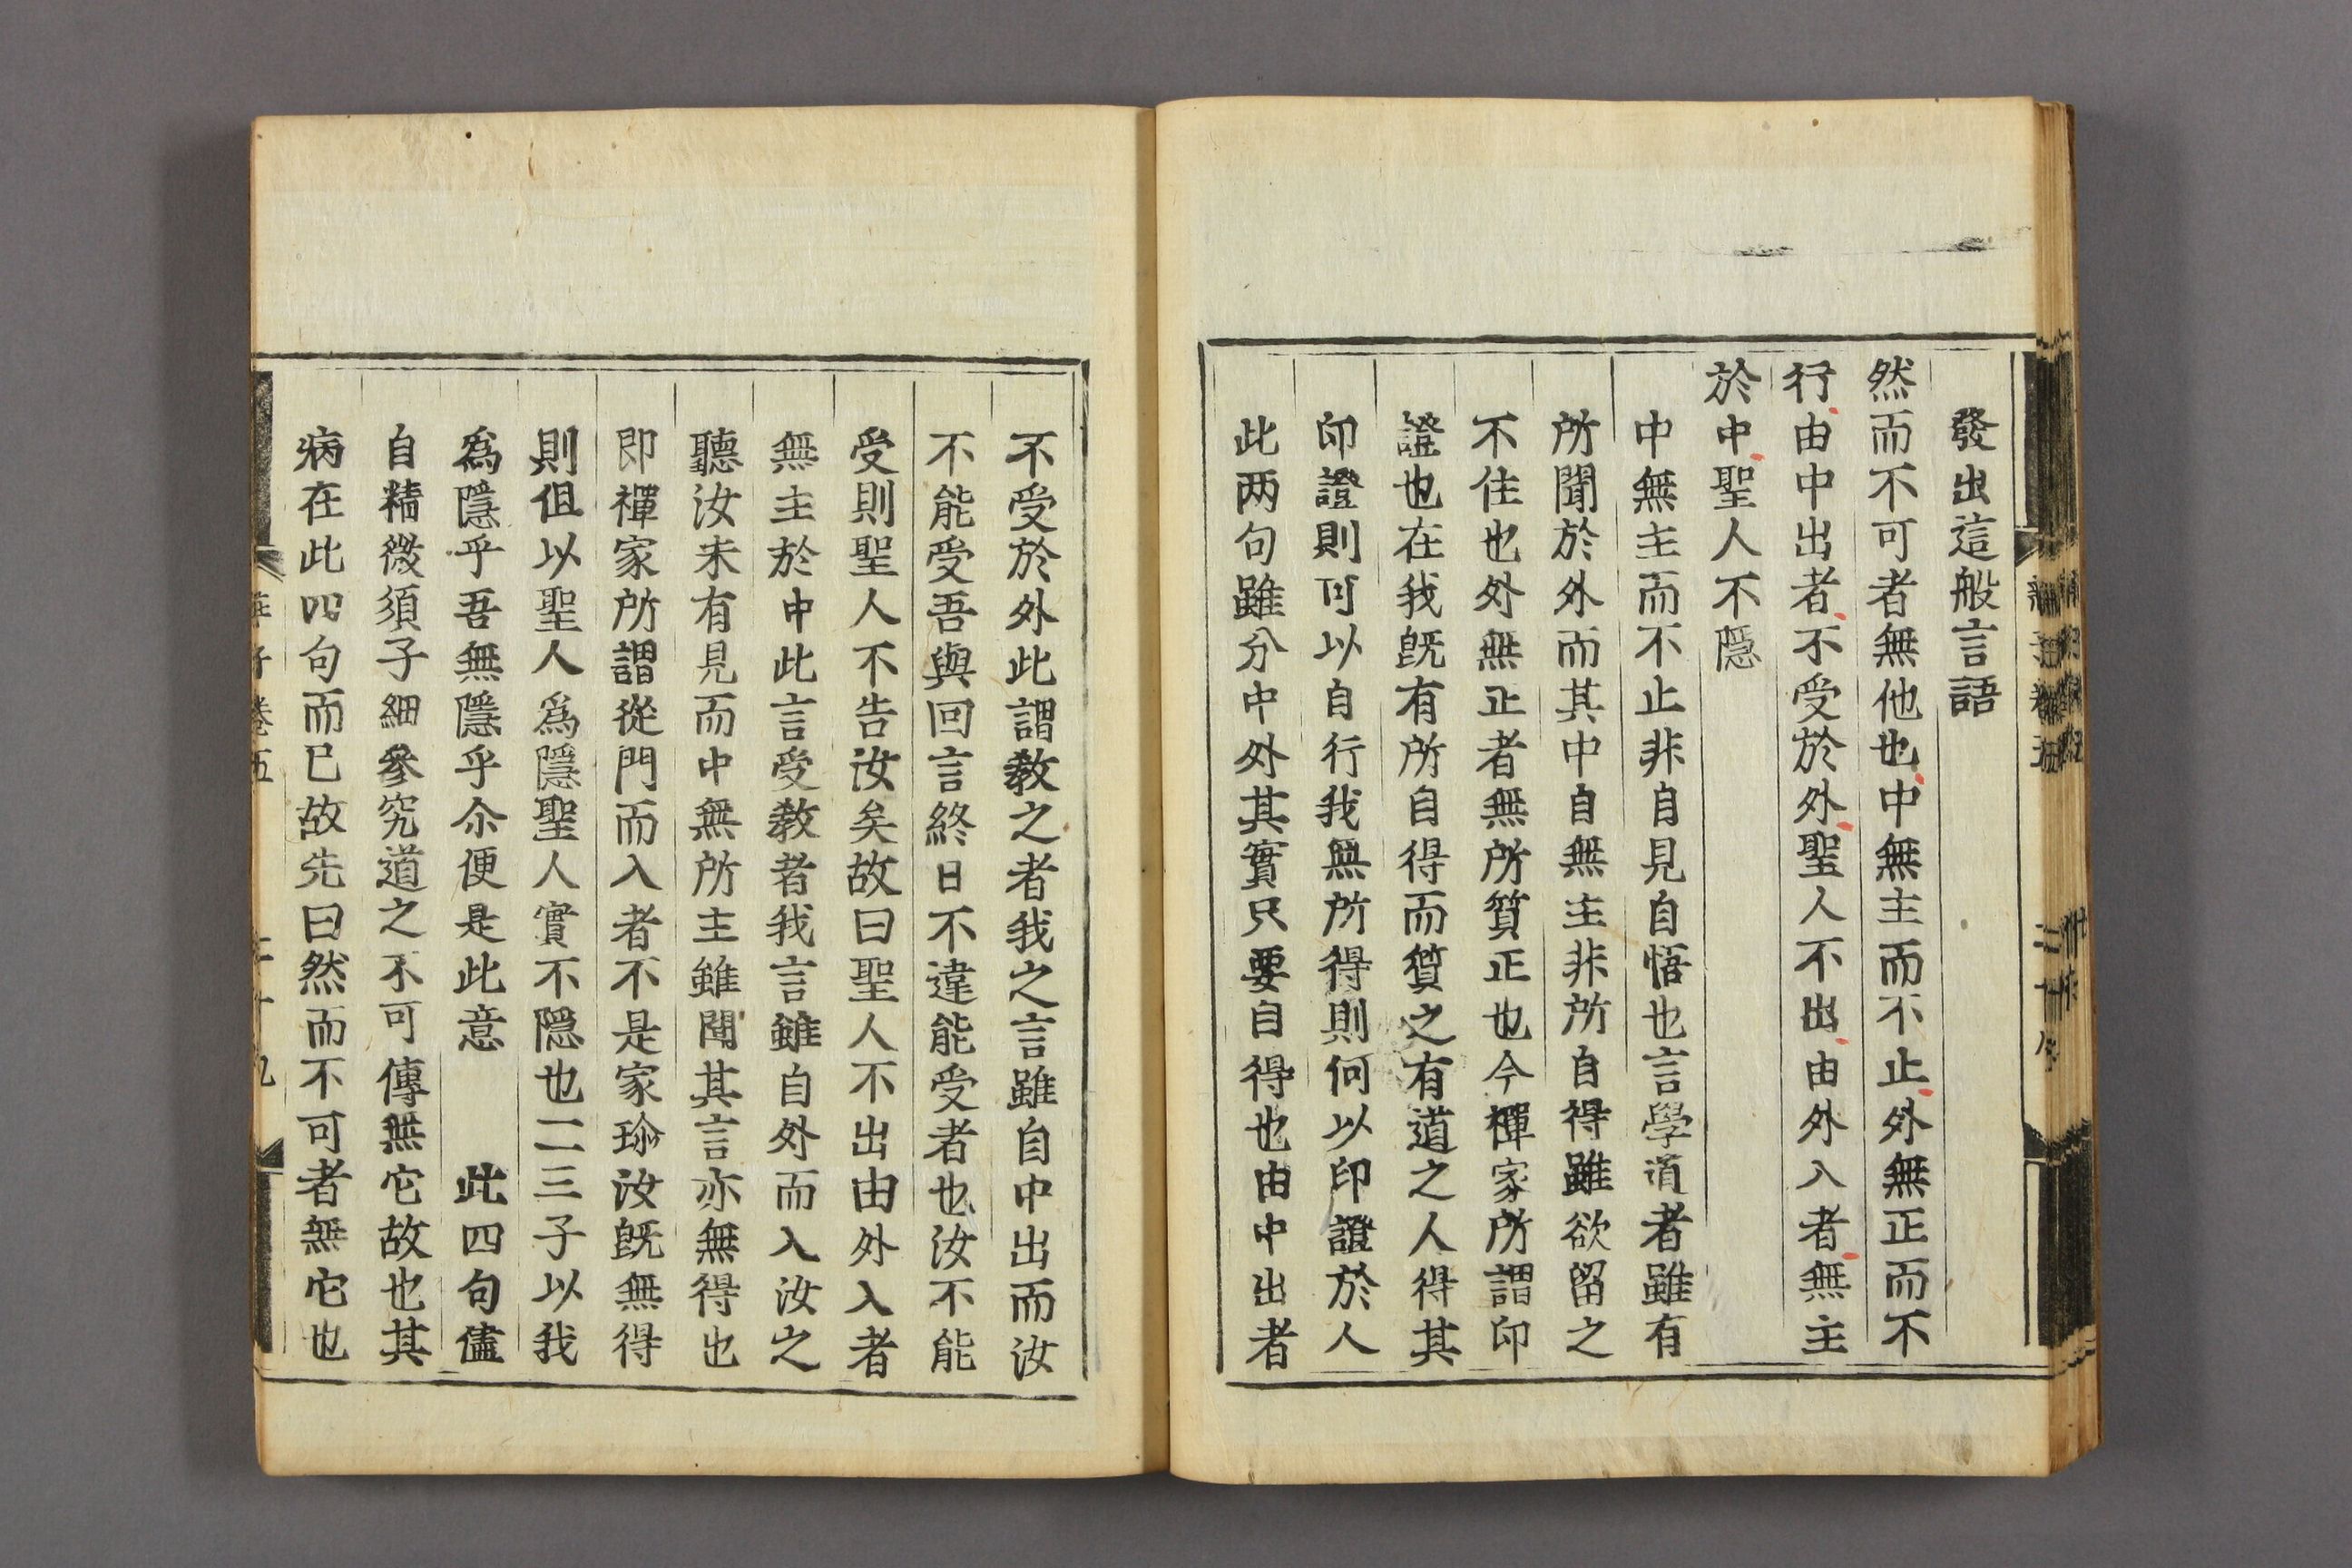 發出這般言語
然而不可者無他也中無主而不止外無正而不
行由中出者不受於外聖人不出由外入者無主
於中聖人不隱
中無主而不止非自見自悟也言學道者雖有
所聞於外而其中自無主非所自得雖欲留之
不住也外無正者無所質正也今禪家所謂印
證也在我既有所自得而質之有道之人得其
印證則可以自行我無所得則何以印證於人
此两句雖分中外其實只要自得也由中出者
不受於外此謂教之者我之言雖自中出而汝
不能受吾與回言終日不違能受者也汝不能
受則聖人不告汝矣故曰聖人不出由外入者
無主於中此言受教者我言雖自外而入汝之
聽汝未有見而中無所主雖聞其言亦無得也
即禪家所謂從門而入者不是家珎汝既無得
則但以聖人爲隱聖人實不隱也二三子以我
爲隱乎吾無隱乎尒便是此意 此四句儘
自精微須子細參究道之不可傳無它故也其
病在此四句而已故先曰然而不可者無它也
莊子卷五 二十九